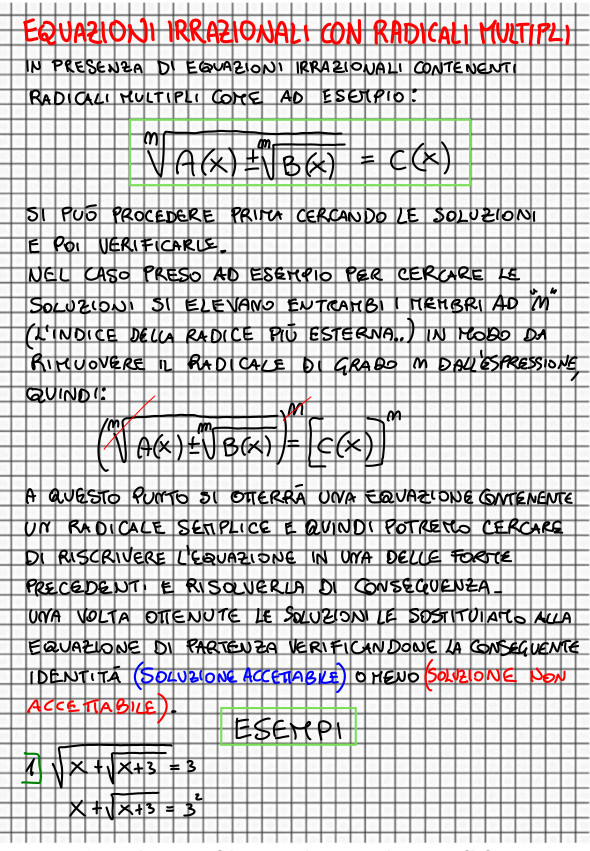 EQUAZIONI IRRAZIONALI CON RADICALI MULTIPLI
IN PRESENZA DI EQUAZIONI IRRAZIONALI CONTENENTI
RADICALI MULTIPLI COME AD ESEMPIO:
ᵐ√(A(x) ± ᵐ√(B(x))) = C(x)
SI PUÒ PROCEDERE PRIMA CERCANDO LE SOLUZIONI
E POI VERIFICARLE.
NEL CASO PRESO AD ESEMPIO PER CERCARE LE
SOLUZIONI SI ELEVANO ENTRAMBI I MEMBRI AD "M"
(L'INDICE DELLA RADICE PIÙ ESTERNA..) IN MODO DA
RIMUOVERE IL RADICALE DI GRADO M DALL'ESPRESSIONE,
QUINDI:
(ᵐ√(A(x) ± ᵐ√(B(x))))ᵐ = [C(x)]ᵐ
A QUESTO PUNTO SI OTTERRÀ UNA EQUAZIONE CONTENENTE
UN RADICALE SEMPLICE E QUINDI POTREMO CERCARE
DI RISCRIVERE L'EQUAZIONE IN UNA DELLE FORME
PRECEDENTI E RISOLVERLA DI CONSEGUENZA.
UNA VOLTA OTTENUTE LE SOLUZIONI LE SOSTITUIAMO ALLA
EQUAZIONE DI PARTENZA VERIFICANDONE LA CONSEGUENTE
IDENTITÀ (SOLUZIONE ACCETTABILE) O MENO (SOLUZIONE NON
ACCETTABILE).
ESEMPI
1 √(x + √(x+3)) = 3
x + √(x+3) = 3²